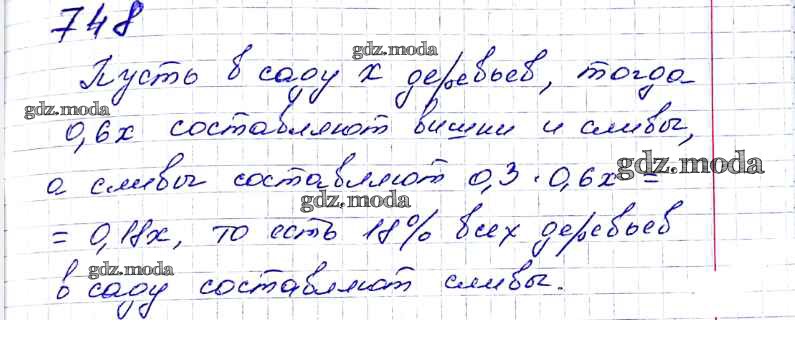 748
gdz.moda
Пусть в саду x деревьев, тогда
gdz.moda
0,6x составляют вишни и сливы,
а сливы составляют 0,3 · 0,6x =
gdz.moda
gdz.moda
= 0,18x, то есть 18% всех деревьев
gdz.moda
в саду составляют сливы.